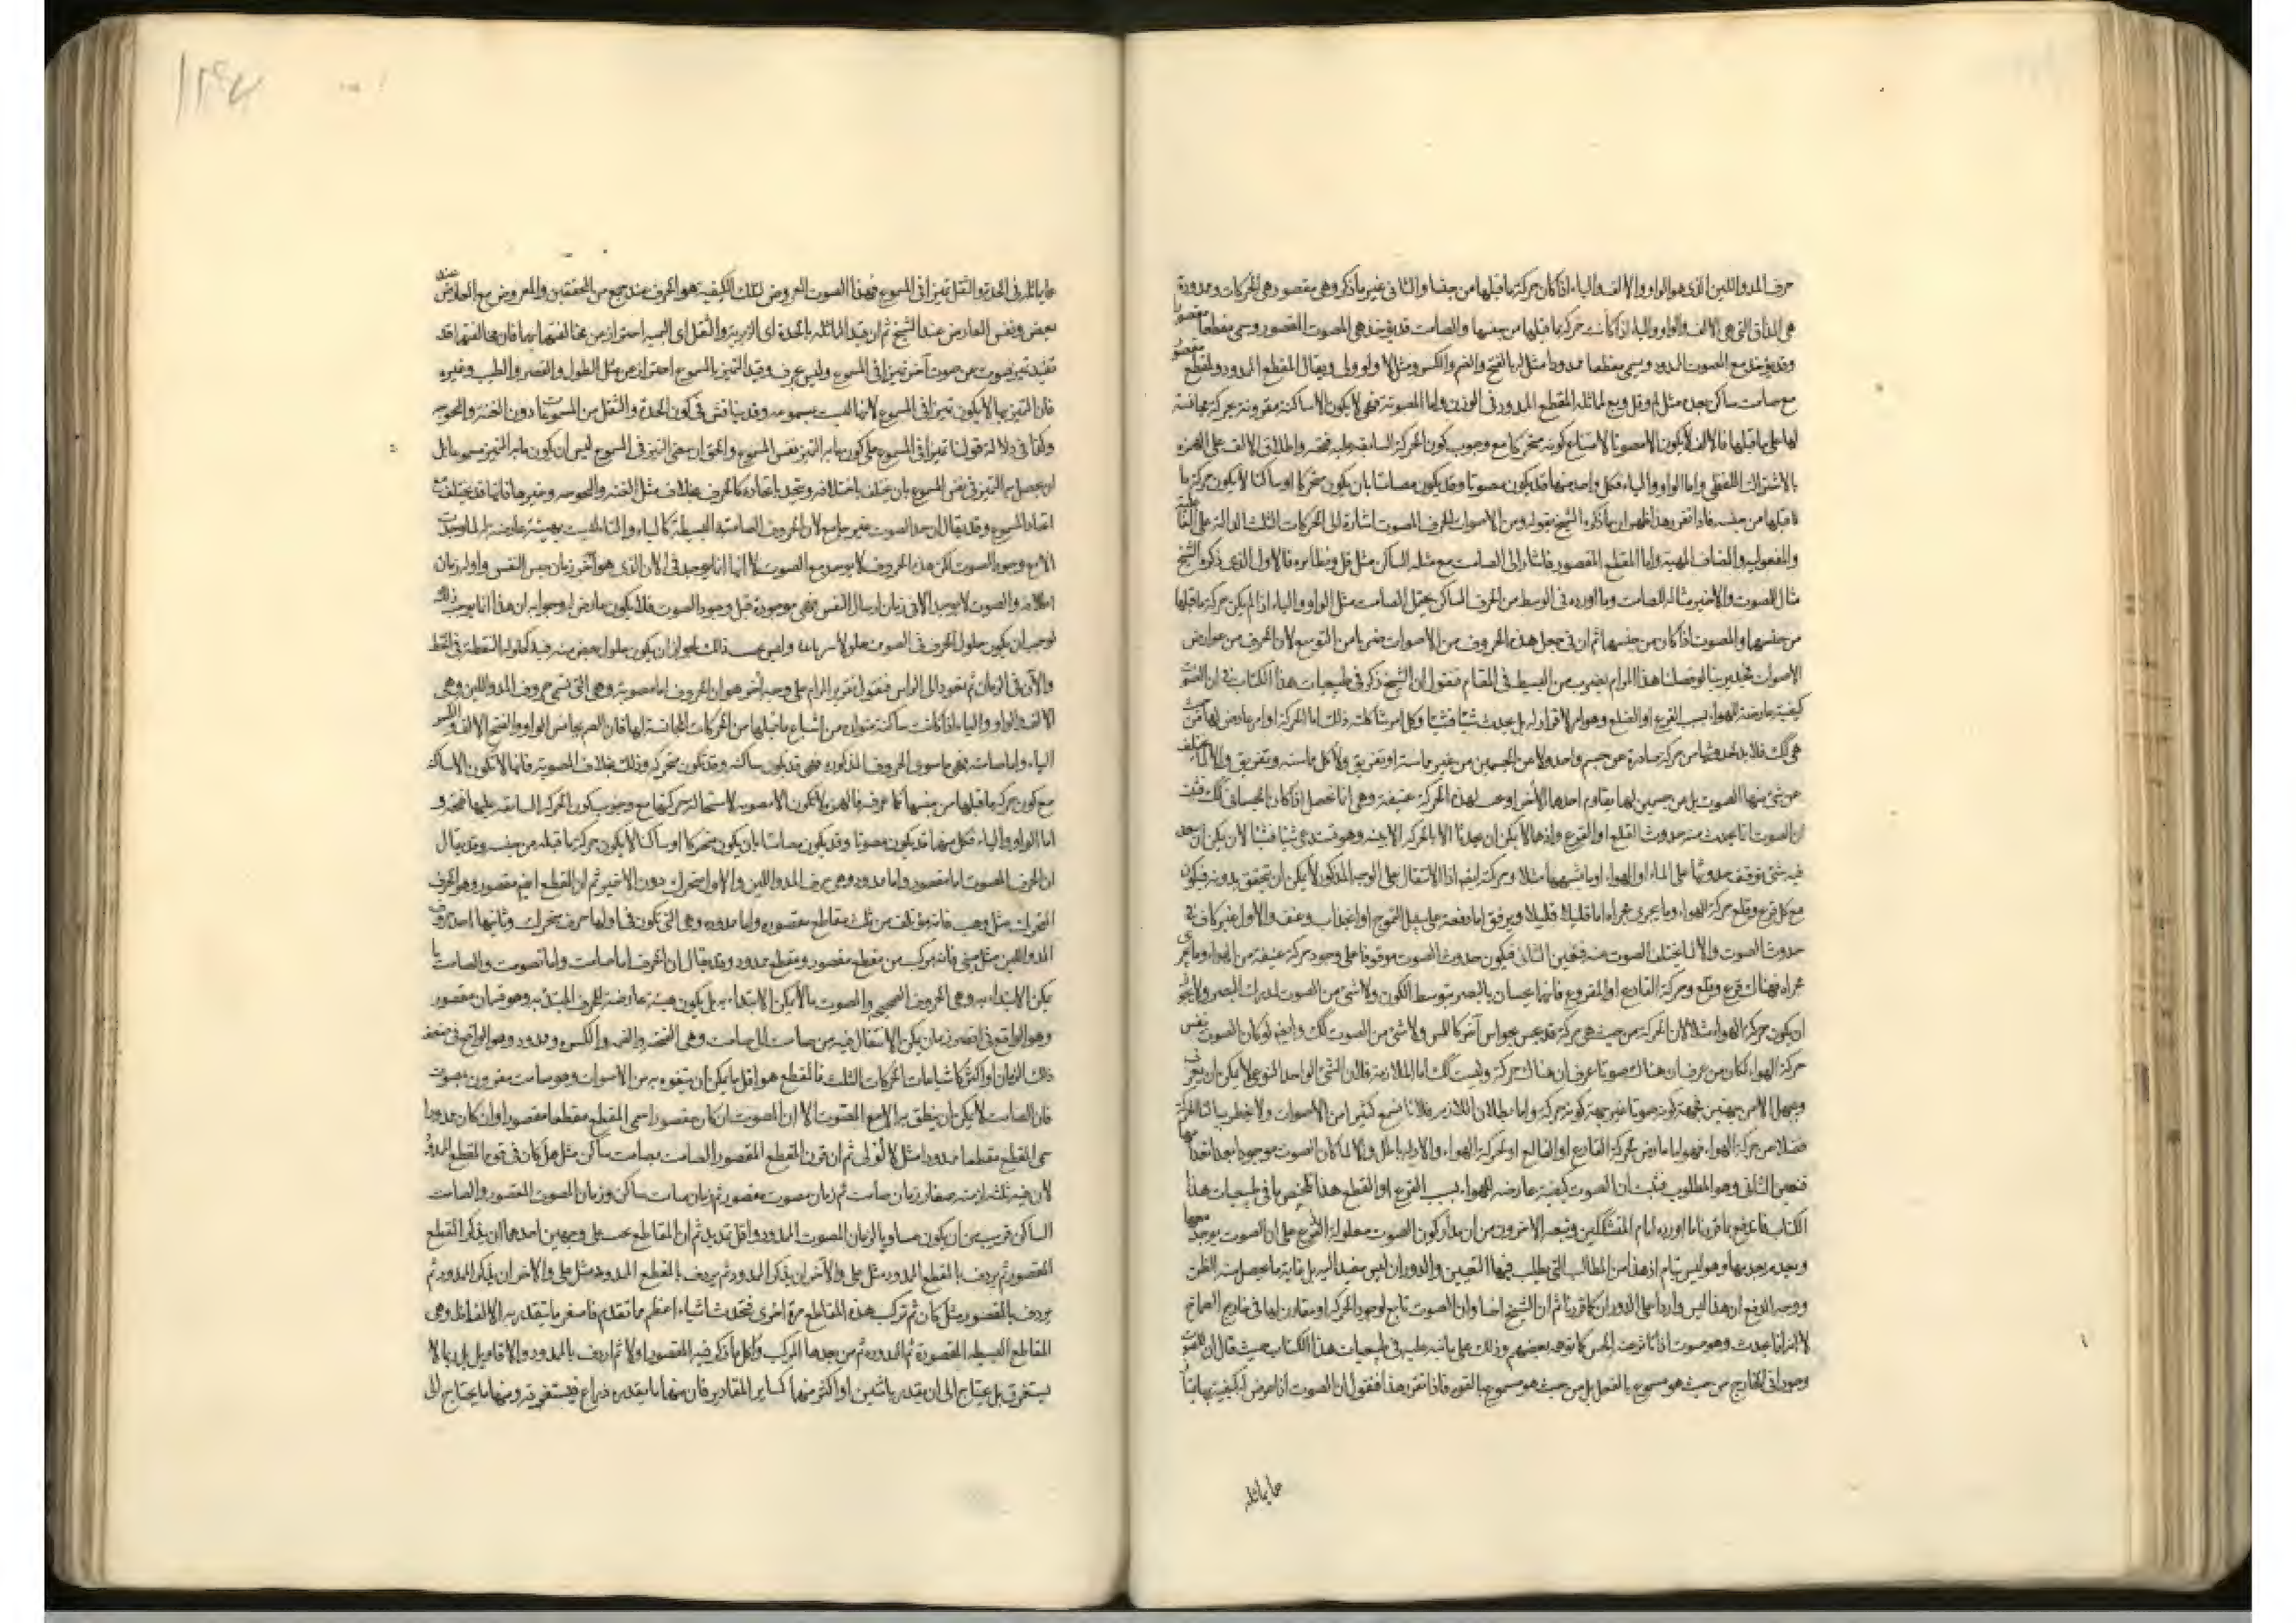 حرف المد واللين الذى هو الواو والالف والياء اذا كان حركة ما قبلها من جنسها والثانى غير ما ذكر وهى مقصورة هى الحركات وممدودة
هى المدات التى هى الالف والواو والياء اذا كانت حركة ما قبلها من جنسها والصامت قد يؤخذ مع المصوت المقصور ويسمى مقطعا مقصورا
وقد يؤخذ مع المصوت الممدود ويسمى مقطعا ممدودا مثل لـ بالفتح والضم والكسر ومثل لا ولو ولى ويقال المقطع الممدود ولمقطع مقصور
مع صامت ساكن بعده مثل لم وقل وبع لمماثله المقطع الممدود فى الوزن واما المصوتة فهى لا يكون الا ساكنة مقرونة بحركة مجانسة
لها على ما قبلها فالالف لا يكون الا مصوتا لامتناع كونه متحركا مع وجوب كون الحركة السابقة عليه فتحة واطلاق الالف على الهمزة
بالاشتراك اللفظى واما الواو والياء فكل واحد منهما قد يكون مصوتا وقد يكون صامتا بان يكون متحركا او ساكنا لا يكون حركة ما
قبلها من جنسه فاذا تقرر هذا ظهر ان ما ذكره الشيخ بقوله ومن الاصوات الحرف المصوت اشارة الى الحركات الثلث الدالة على الفاعلية
والمفعولية والمضاف اليه واما المقطع المقصور فاشار الى الصامت مع مثله الساكن مثل قل ونظائره فالاول الذى ذكره الشيخ
مثال للمصوت والاخير مثال للصامت وما اورده فى الوسط من الحرف الساكن يحتمل الصامت مثل الواو والياء اذا لم يكن حركة ما قبلها
من جنسها والمصوت اذا كان من جنسها ثم ان فى جعل هذه الحروف من الاصوات ضربا من التوسع لان الحروف من عوارض
الاصوات فجدير بنا لو فصلنا هذا المرام بضرب من البسيط فى المقام فنقول ان الشيخ ذكر فى طبيعيات هذا الكتاب ان الصوت
كيفية عارضة للهواء بسبب القرع او القلع وهو امر لا قرار له بل يحدث شيئا فشيئا وكل امر شأنه ذلك اما الحركة او امر عارض لها
هى كك فلا بد لحدوثها من حركة صادرة عن جسم واحد ولا من الجسمين من غير مماسة او تفريق ولا كل مماسة وتفريق والا لما تخلف
عن شئ منها الصوت بل من جسمين لها يقاوم احدهما الاخر او يجب لهذه الحركة عنيفة وهى انما تحصل اذا كان الجسمان كك فثبت
ان الصوت انما يحدث منه حدوث القلع او القرع وانهما لا يمكن ان يحدثا الا بالحركة الاينية وهو قد يدعى شيئا فشيئا لان يمكن ان يوجد
فيه شئ توقف حدوثها على الماء او الهواء او ما يشبههما مثلا وحركة ايضا اذ الانتقال على الوجه المذكور لا يمكن ان يتحقق بدونه فيكون
مع كل قرع وقلع حركة للهواء وما يجرى مجراه اما قليلا قليلا وبرفق اما دفعة على سبيل التموج او انجذاب وعنف والاول غير كاف فى
حدوث الصوت والا لما تخلف الصوت عنه فتعين الثانى فيكون حدوث الصوت موقوفا على وجود حركة عنيفة من الهواء وما يجرى
مجراه فهناك قرع وقلع وحركة القارع او المقروع فانهما يحسان بالبصر بتوسط اللون ولا شئ من الصوت لدرك البصر ولا يجوز
ان يكون حركة الهواء مثلا لان الحركة من حيث هى حركة قد يحس بحواس آخر كاللمس ولا شئ من الصوت كك وايضا لو كان الصوت نفس
حركة الهواء لكان من عرف ان هناك صوتا عرف ان هناك حركة وليست كك اما الملازمة فلان الشئ الواحد النوعى لا يمكن ان يعرف
ويجهل الا من جهتين فجهة كونه صوتا غير جهة كونه حركة واما بطلان اللازم فلانا نسمع كثيرا من الاصوات ولا يخطر ببالنا الحركة
فضلا من حركة الهواء فهو اما عارض لحركة القارع او القالع او لحركة الهواء والاول باطل والا لما كان الصوت موجودا بعد انقضائها
فتعين الثانى وهو المطلوب فثبت ان الصوت كيفية عارضة للهواء بسبب القرع او القطع هذا تلخيص ما فى طبيعيات هذا
الكتاب فاندفع بما قررنا ما اورده امام المتشككين وتبعه الاخرون من ان مدار كون الصوت معلولا للتموج على ان الصوت يوجد معها
ويعدم بعدمها وهو ليس بتام اذ هذا من المطالب التى يطلب فيها التعيين والدوران ليس مفيدا اليه بل غاية ما يحصل منه الظن
ووجه الدفع ان هذا ليس واردا على الدوران كما قررنا ثم ان الشيخ اضا وان الصوت تابع لوجود الحركة او مقارن لها فى خارج الصماخ
لا انه انما يحدث وهو صوت اذا تأثرت الحس كما توهم بعضهم وذلك على ما نبه عليه فى طبيعيات هذا الكتاب حيث قال ان للصوت
وجودا فى الخارج من حيث هو مسموع بالفعل بل من حيث هو مسموع بالقوه فاذا تقرر هذا فنقول ان الصوت اذا عرض له كيفية بها يمتاز
عما يماثله
عما يماثله فى الحدة والثقل تميزا فى المسموع فهذا الصوت المعروض لتلك الكيفية هو الحرف عند جمع من المحققين والمعروض مع العارض عند
بعض ونفس العارض عند الشيخ ثم ان قيد المماثله بالحدة اى الزيرية والثقل اى البمية احتراز من مخالفتها بهما فان مخالفتهما قد
تفيد تميز صوت عن صوت آخر تميزا فى المسموع وليس بحرف وقيد التميز بالمسموع احترازا عن مثل الطول والقصر والطيب وغيره
فان التميز بها لا يكون تميزا فى المسموع لانها ليست بمسموعة وقد يناقش فى كون الحدة والثقل من المسموعات دون الغنة والبحوحة
وكذا فى دلالة قولنا تميزا فى المسموع على كون ما به التميز نفس المسموع والحق ان معنى التميز فى المسموع ليس ان يكون ما به التميز مسموعا بل
ان يحصل به التميز فى نفس المسموع بان يختلف باختلافه ويتحد باتحاده كالحرف بخلاف مثل الغنة والبحوحة وغيرها فانها قد يختلف مع
اتحاد المسموع وقد يقال ان حد الصوت غير جامع لان الحروف الصامتة البسيطة كالباء والتاء ليست بهيئة عارضة له لما وجدت
الا مع وجود الصوت لكن هذه الحروف لا يوجد مع الصوت لانها انما يوجد فى الآن الذى هو آخر زمان حبس النفس واول زمان
اطلاقه والصوت لا يوجد الا فى زمان ارسال النفس فهى موجودة قبل وجود الصوت فلا يكون عارض له وجوابه ان هذا انما يوجب ذلك
لو وجب ان يكون حلول الحرف فى الصوت حلولا سريانيا وليس يجب ذلك لجواز ان يكون حلول بعض منه فيه كحلول النقطة فى الخط
والآن فى الزمان ثم نعود الى الراس فنقول نقرير المرام على وجه آخر هو ان الحروف اما مصوتة وهى التى تسمى حروف المد واللين وهى
الالف والواو والياء اذا كانت ساكنة متولدة من اشباع ما قبلها من الحركات المجانسة لها فان الضم مجانس الواو والفتح الالف والكسر
الياء واما صامتة فهى ما سوى الحروف المذكورة فهى قد يكون ساكنة وقد تكون متحركة وذلك بخلاف المصوتة فانها لا تكون الا ساكنة
مع كون حركة ما قبلها من جنسها كما عرفت فالهمزة لا يكون الا مصوتة لاستحالة حركتها مع وجوب كون الحركة السابقة عليها فتحة و
اما الواو والياء فكل منهما قد يكون مصوتا وقد يكون صامتا بان يكون متحركا او ساكنا لا يكون حركة ما قبله من جنسه وقد يقال
ان الحرف المصوت اما مقصور واما ممدود وهى حرف المد واللين والاول متحرك دون الاخير ثم ان القطع ايضا مقصور وهو الحرف
المتحرك مثل وهب فانه مؤتلف من ثلث مقاطع مقصورة واما ممدودة وهى التى تكون فى اولها حرف متحرك وثانيها احد حرف
المد واللين مثل بنى فانه مركب من مقطع مقصور ومقطع ممدود وقد يقال ان الحرف اما صامت واما مصوت والصامت ما
يمكن الابتداء به وهى الحروف الصحيح والمصوت ما لا يمكن الابتداء به بل يكون هيئة عارضة للحرف المبتدئ به وهو قسمان مقصور
وهو الواقع فى اقصر زمان يمكن الانتقال فيه من صامت الى صامت وهى الفتحة والضمة والكسرة وممدود وهو الواقع فى ضعف
ذلك الزمان او اكثر كاشباعات الحركات الثلث فالمقطع هو اقل ما يمكن ان يتفوه به من الاصوات وهو صامت مقرون بمصوت
فان الصامت لا يمكن ان ينطق به الا مع المصوت الا ان المصوت ان كان مقصورا سمى المقطع مقطعا مقصورا وان كان ممدودا
سمى المقطع مقطعا ممدودا مثل لا لو لى ثم ان قرن المقطع المقصور الصامت بصامت ساكن مثل هل كان فى قوة المقطع الممدود
لان فيه ثلثه ازمنه صغار زمان صامت ثم زمان مصوت مقصور ثم زمان صامت ساكن وزمان المصوت المقصور والصامت
الساكن قريب من ان يكون مساويا لزمان المصوت الممدود واقل تمديد ثم ان المقاطع يجب على وجهين احدهما ان يذكر المقطع
المقصور ثم يردف بالمقطع الممدود مثل على والآخر ان يذكر الممدود ثم يردف بالمقطع الممدود مثل على والاخر ان يذكر الممدود ثم
يردف بالمقصور مثل كان ثم تركب هذه المقاطع مرة اخرى فتحدث اشياء اعظم مما تقدم فاصغر ما يتقدر به الالفاظ وهى
المقاطع البسيطة المقصورة ثم الممدودة ثم من بعدها المركب واكل ما ذكر فيه المقصور اولا ثم اردف بالممدود والاقاويل
يستغرق بل يحتاج الى ان يقدر باثنين او اكثر منها كساير المقادير فان منها ما يقدره ذراع فيستغرقه ومنها ما يحتاج الى